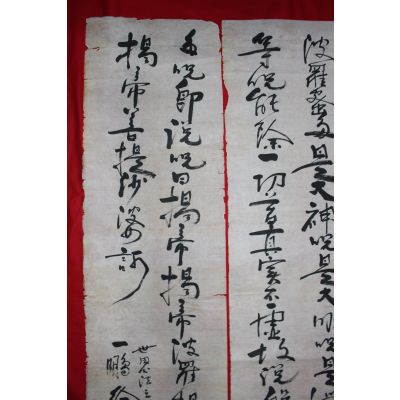 波羅蜜多是大神呪是大明呪是
等呪能除一切苦真実不虚故說般
多呪即說呪曰揭帝揭帝波羅揭
揭帝菩提沙婆訶
一鵬